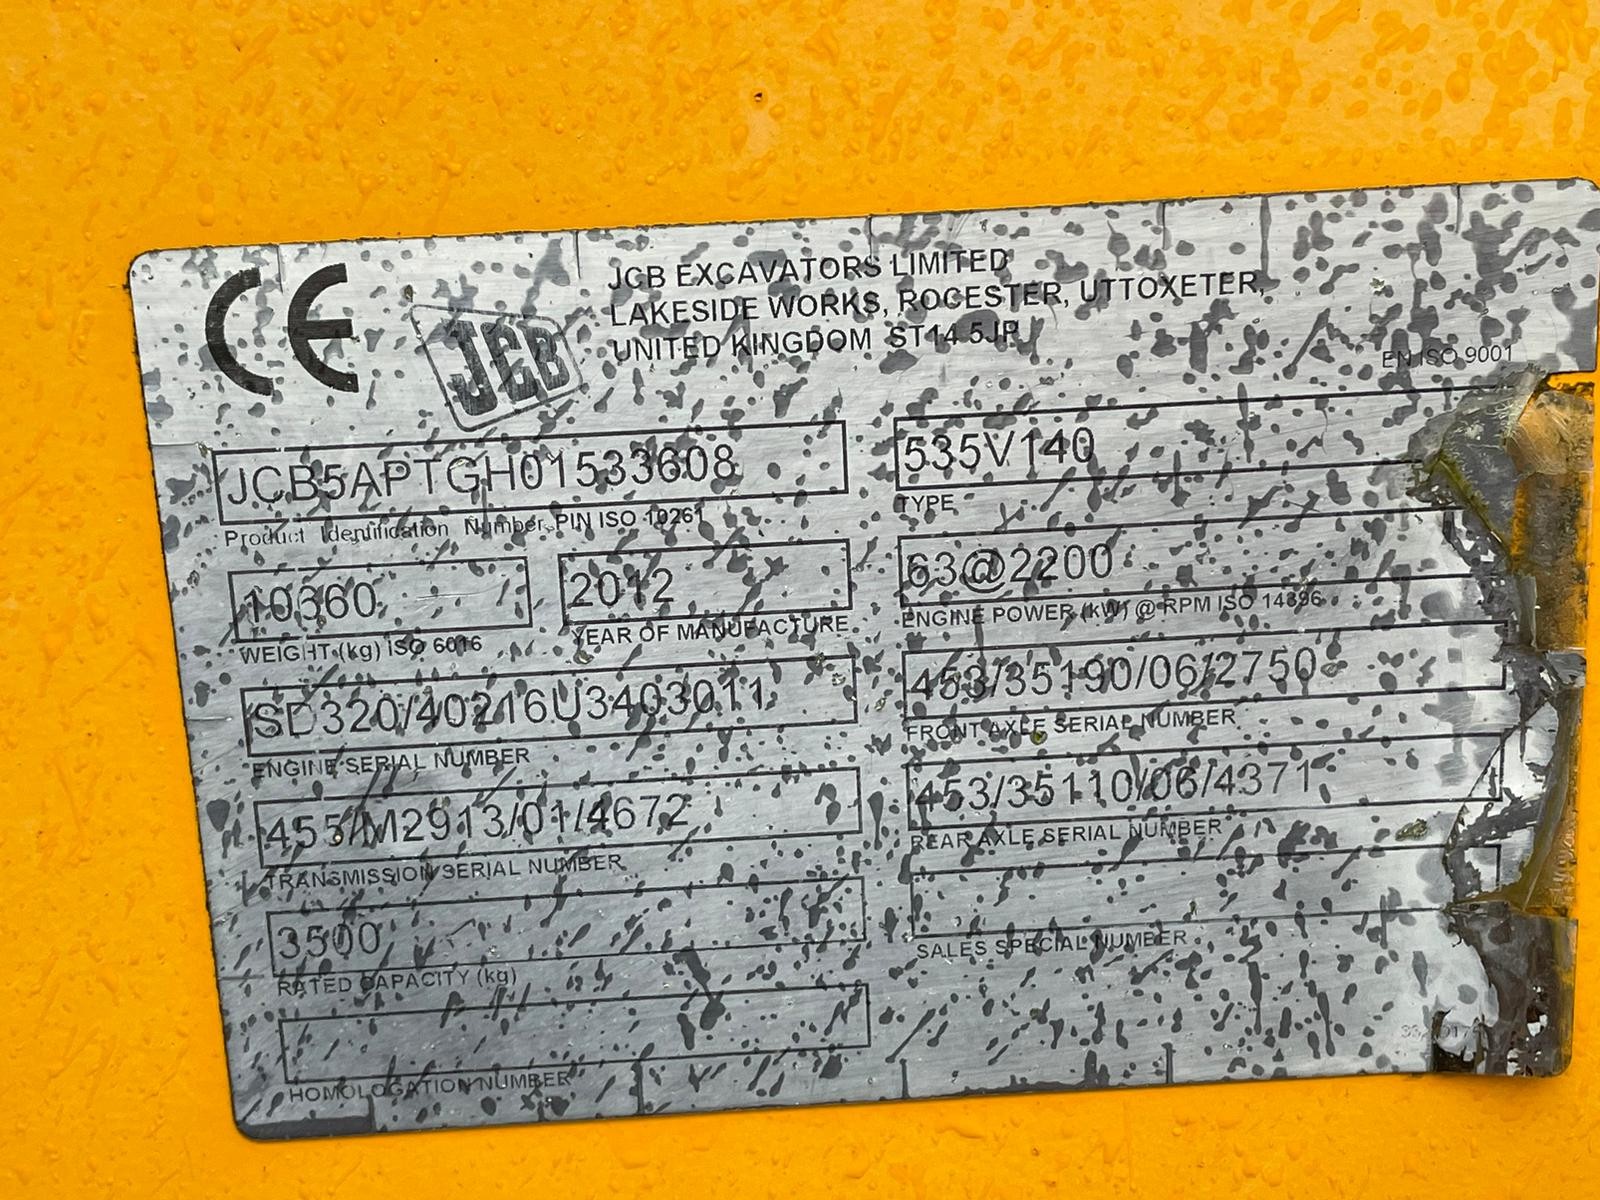 CE
JCB
JCB EXCAVATORS LIMITED
LAKESIDE WORKS, ROCESTER, UTTOXETER,
UNITED KINGDOM ST14 5JP
EN ISO 9001
JCB5APTGH01533608
Product Identification Number PIN ISO 10261
535V140
TYPE
2012
WEIGHT (kg) ISO 6016
YEAR OF MANUFACTURE
63@2200
ENGINE POWER (kW) @ RPM ISO 14396
SD320/40216U3403011
ENGINE SERIAL NUMBER
453/35190/06/2750
FRONT AXLE SERIAL NUMBER
455/M2913/01/4672
TRANSMISSION SERIAL NUMBER
453/35110/06/4371
REAR AXLE SERIAL NUMBER
3500
RATED CAPACITY (kg)
SALES SPECIAL NUMBER
HOMOLOGATION NUMBER